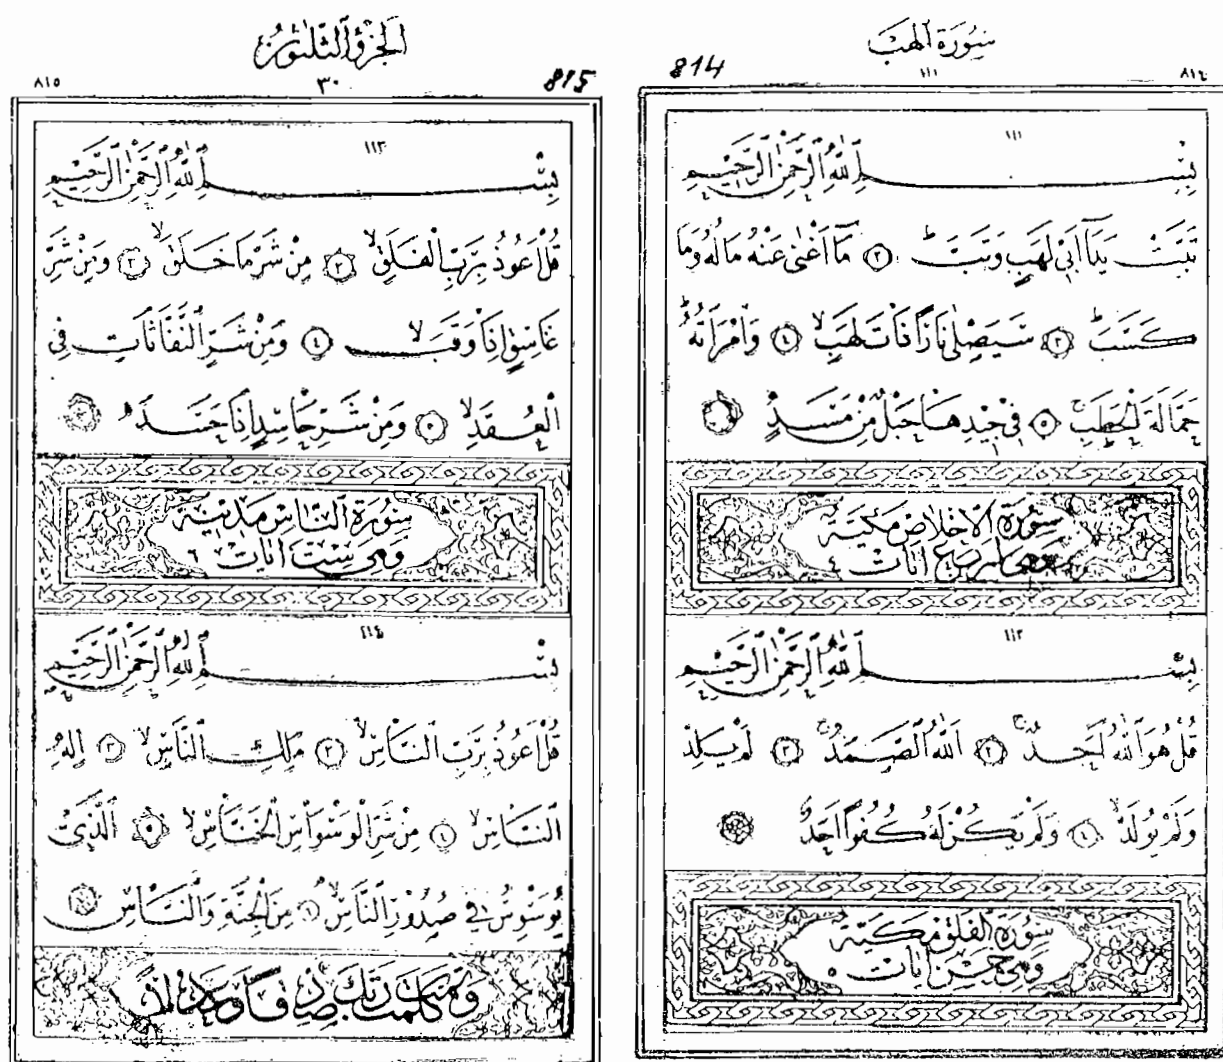 سُورَةُ الهَبْ
814
١١١
٨١٤
١١١
بِسْمِ اللّٰهِ الرَّحْمٰنِ الرَّحِيمِ
تَبَّتْ يَدَآ اَبِى لَهَبٍ وَتَبَّ ط ٢ مَآ اَغْنٰى عَنْهُ مَالُهُ وَمَا
كَسَبَ ط ٣ سَيَصْلٰى نَارًا ذَاتَ لَهَبٍ لا ٤ وَامْرَاَتُهُ ط
حَمَّالَةَ الْحَطَبِ ج ٥ فِى جِيدِهَا حَبْلٌ مِنْ مَسَدٍ
سُورَةُ الْاِخْلَاصِ مَكِّيَّةٌ
وَهِىَ اَرْبَعُ اٰيَاتٍ ٤
١١٢
بِسْمِ اللّٰهِ الرَّحْمٰنِ الرَّحِيمِ
قُلْ هُوَ اللّٰهُ اَحَدٌ ج ٢ اَللّٰهُ الصَّمَدُ ج ٣ لَمْ يَلِدْ
وَلَمْ يُولَدْ لا ٤ وَلَمْ يَكُنْ لَهُ كُفُوًا اَحَدٌ
سُورَةُ الْفَلَقِ مَكِّيَّةٌ
وَهِىَ خَمْسُ اٰيَاتٍ ٥
الْجُزْؤُ الثَّلٰثُونَ
815
٣٠
٨١٥
١١٣
بِسْمِ اللّٰهِ الرَّحْمٰنِ الرَّحِيمِ
قُلْ اَعُوذُ بِرَبِّ الْفَلَقِ لا ٢ مِنْ شَرِّ مَا خَلَقَ لا ٣ وَمِنْ شَرِّ
غَاسِقٍ اِذَا وَقَبَ لا ٤ وَمِنْ شَرِّ النَّفَّاثَاتِ فِى
الْعُقَدِ لا ٥ وَمِنْ شَرِّ حَاسِدٍ اِذَا حَسَدَ
سُورَةُ النَّاسِ مَدَنِيَّةٌ
وَهِىَ سِتُّ اٰيَاتٍ ٦
١١٤
بِسْمِ اللّٰهِ الرَّحْمٰنِ الرَّحِيمِ
قُلْ اَعُوذُ بِرَبِّ النَّاسِ لا ٢ مَلِكِ النَّاسِ لا ٣ اِلٰهِ
النَّاسِ لا ٤ مِنْ شَرِّ الْوَسْوَاسِ الْخَنَّاسِ لا ٥ اَلَّذِى
يُوَسْوِسُ فِى صُدُورِ النَّاسِ لا ٦ مِنَ الْجِنَّةِ وَالنَّاسِ
وَتَمَّتْ كَلِمَتُ رَبِّكَ صِدْقًا وَعَدْلًا